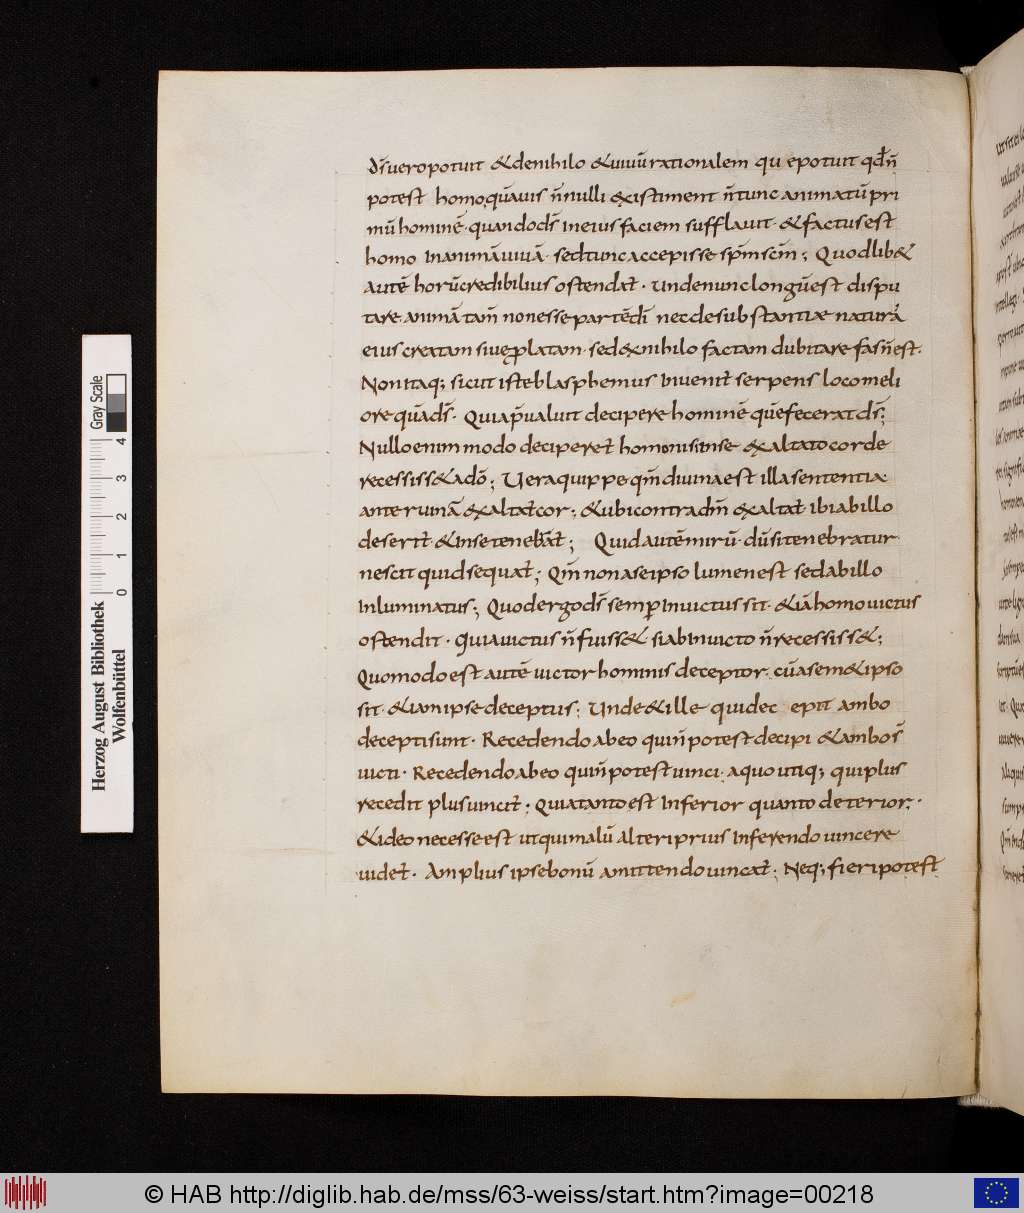 d̄s uero potuit & de nihilo & uiuū rationalem qu epotuit qd̄ n̄
potest homo quāuis n̄ nulli existiment n̄ tunc animatū pri
mū hominē · quando d̄s in eius faciem sufflauit · & factus est
homo in animā uiuā · sed tunc accepisse sp̄m sc̄m ; Quodlib&
autē horū credibilius ostendat̄ · unde nunc longū est dispu
tare · animā tam̄ non esse partē dī nec de substantia naturā
eius creatam siue ꝓlatam · sed ex nihilo factam dubitare fas n̄ est ·
Non itaq; sicut iste blasphemus inuenit̄ serpens loco meli
ore quā d̄s · Quia p̄ualuit decipere hominē quē fecerat d̄s ;
Nullo enim modo deciperet̄ homo nisi in se exaltato corde
recessiss& a dō ; Uera quippe qm̄ diuina est illa sententia
ante ruinā exaltat̄ cor ; & ubi contra dm̄ exaltat̄ ibi ab illo
deserit̄ & in se tenebrat̄ ; Quid autē mirū · dū si tenebratur
nescit quid sequat̄ ; Qm̄ non a se ipso lumen est sed ab illo
inluminatus ; Quod ergo d̄s semp̄ inuictus sit · & iā homo uictus
ostendit · Quia uictus n̄ fuiss& si ab inuicto n̄ recessiss& ;
Quomodo est autē uictor hominis deceptor · cū a sem&ipso
sit · & iam ipse deceptus ; Unde & ille qui dec epit ambo
decepti sunt · Recedendo ab eo qui n̄ potest decipi & ambo s̄
uicti · Recedendo ab eo qui n̄ potest uinci · a quo utiq; qui plus
recedit plus uincit̄ ; Quia tanto est inferior quanto deterior ; ·
& ideo necesse est ut qui malū alteri prius inferendo uincere
uidet̄ · Amplius ipse bonū amittendo uincat̄ ; Neq; fieri potest
Herzog August Bibliothek
Wolfenbüttel
Gray Scale
0 1 2 3 4
© HAB http://diglib.hab.de/mss/63-weiss/start.htm?image=00218